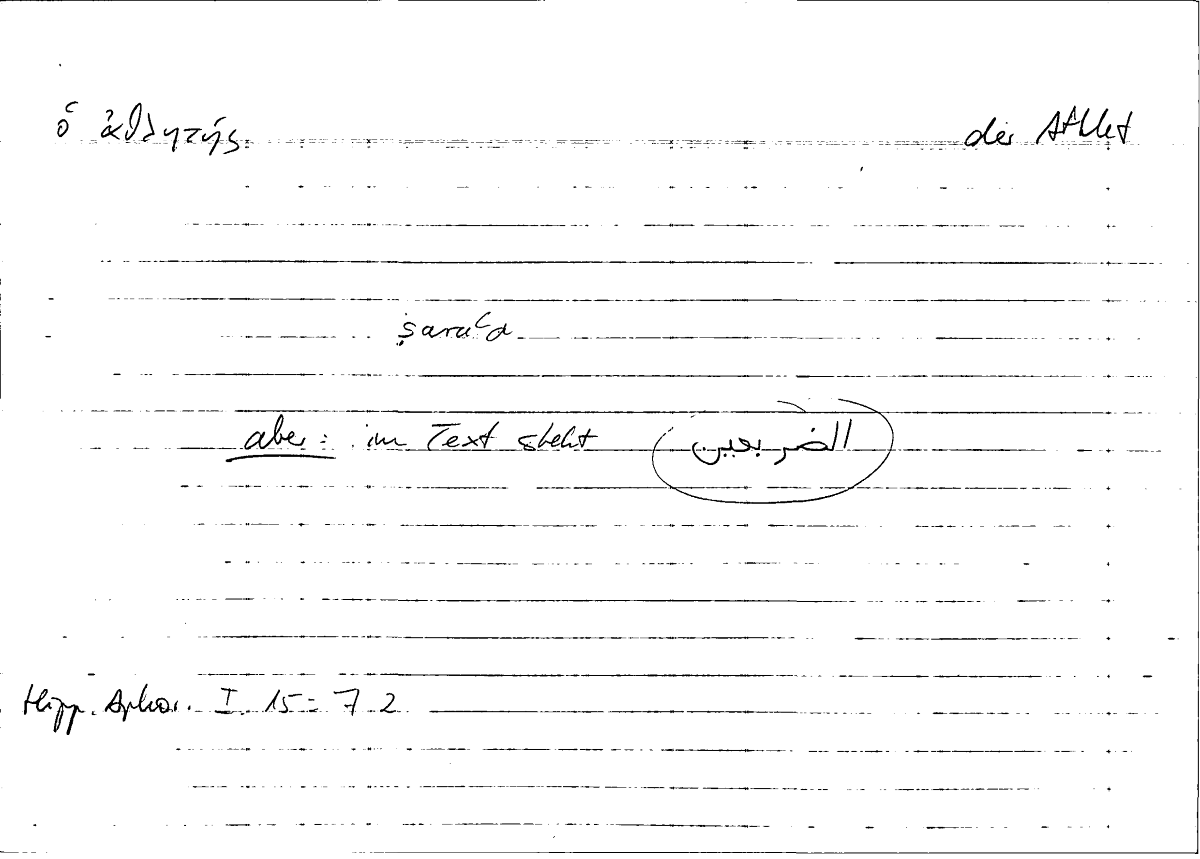 ὁ ἀθλητής der Athlet
ṣaraʿa
aber: im Text steht الضربعين
Hipp. Aphor. I. 15 = 7 2